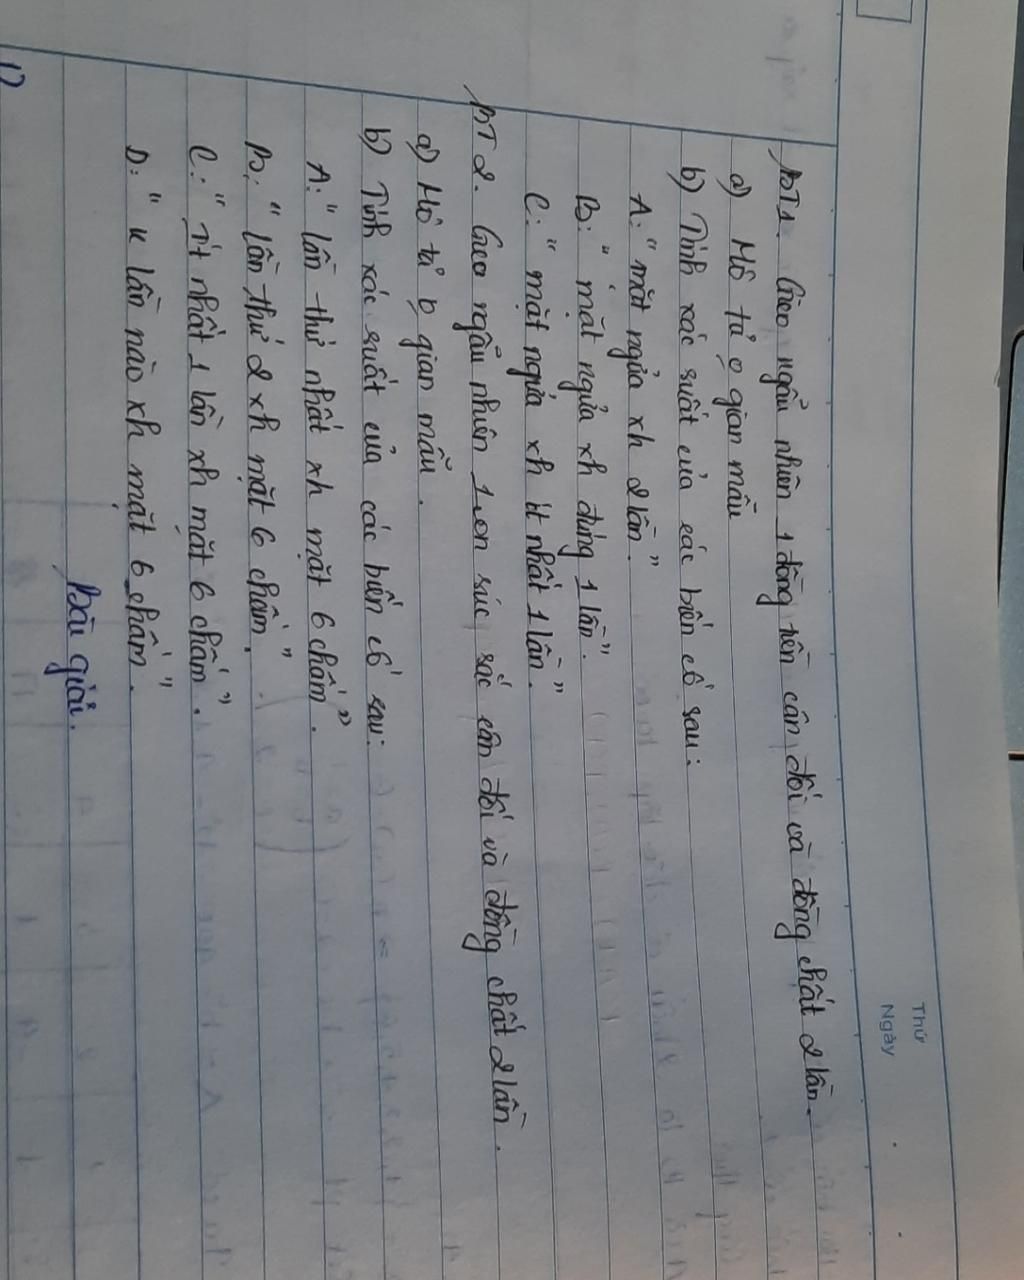 Thứ
Ngày
BT1. Gieo ngẫu nhiên 1 đồng tiền cân đối và đồng chất 2 lần.
a) Mô tả ο gian mẫu
b) Tính xác suất của các biến cố sau:
A: "mặt ngửa xh 2 lần."
B: "mặt ngửa xh đúng 1 lần".
C: "mặt ngửa xh ít nhất 1 lần."
BT2. Gieo ngẫu nhiên 1 con súc sắc cân đối và đồng chất 2 lần.
a) Mô tả gian mẫu.
b) Tính xác suất của các biến cố sau:
A: "lần thứ nhất xh mặt 6 chấm".
B: "lần thứ 2 xh mặt 6 chấm."
C: "Ít nhất 1 lần xh mặt 6 chấm".
D: "K lần nào xh mặt 6 chấm".
Bài giải.
1)